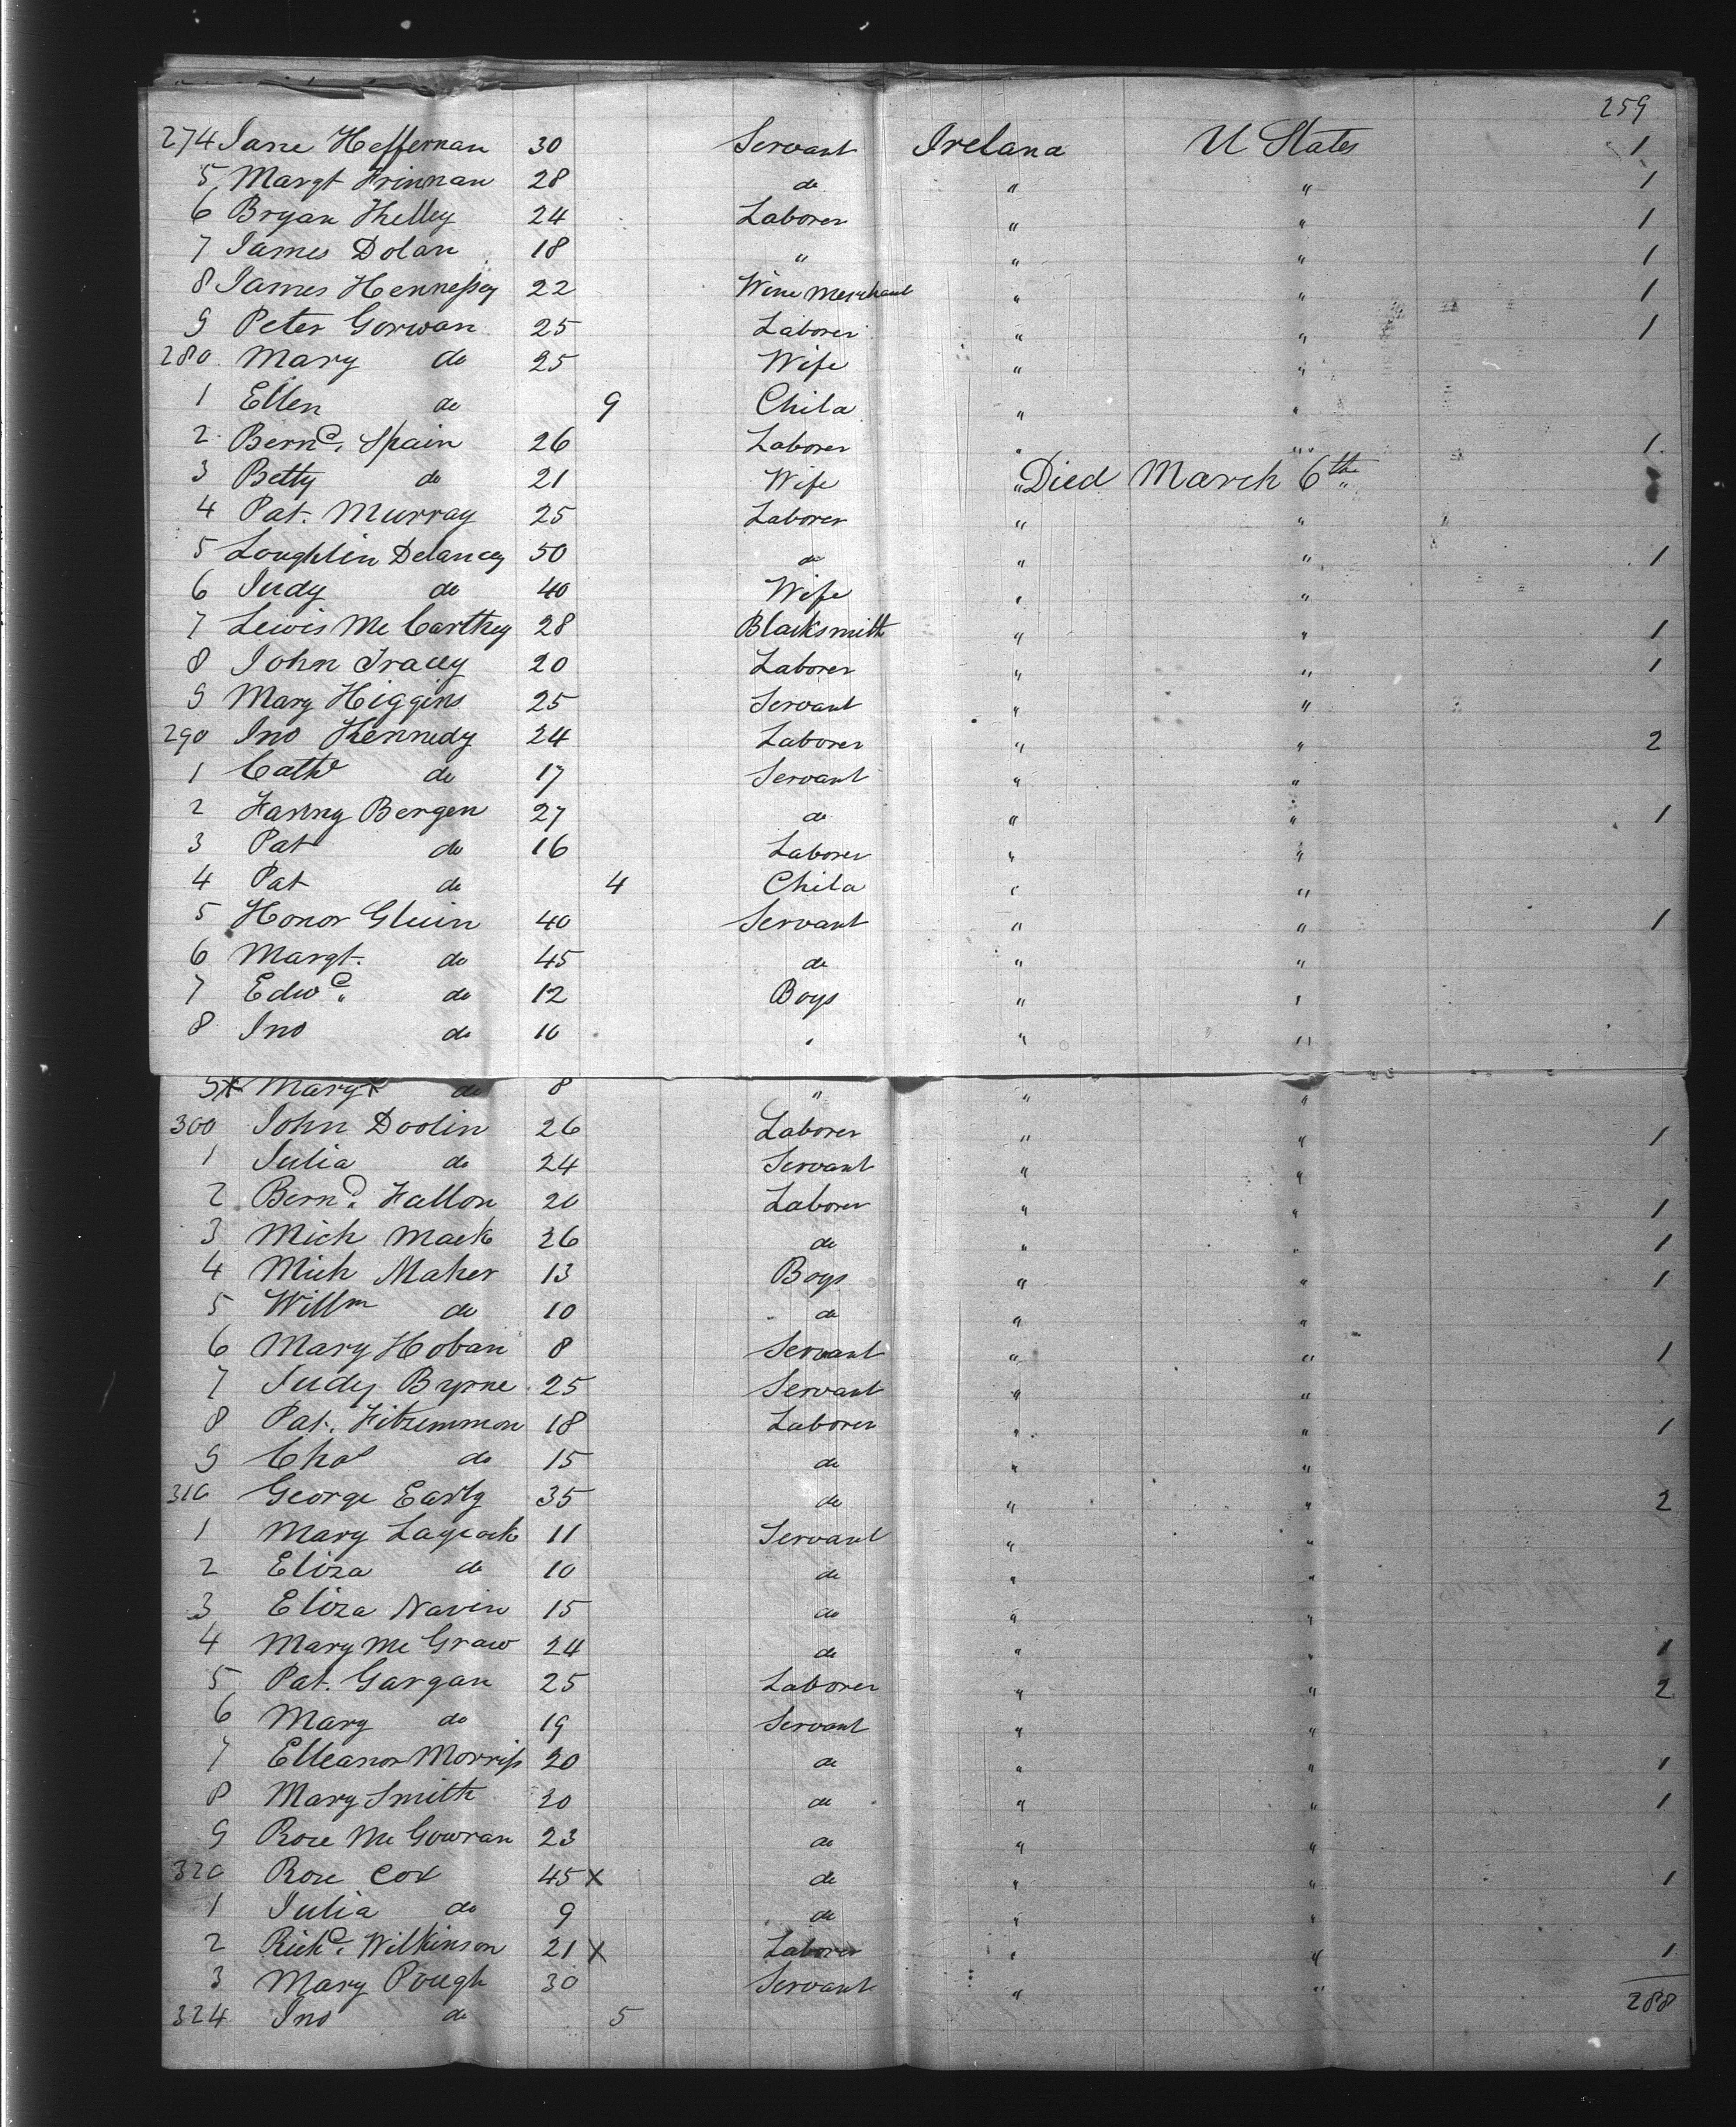 259
274 Jane Heffernan 30 Servant Ireland U States 1
5 Margt Frinnan 28 do " " 1
6 Bryan Kelley 24 Laborer " " 1
7 James Dolan 18 " " " 1
8 James Hennessey 22 Wine Merchant " " 1
9 Peter Gorwan 25 Laborer " " 1
280 Mary do 25 Wife " "
1 Ellen do 9 Child " "
2 Bernd. Spain 26 Laborer " " 1
3 Betty do 21 Wife " Died March 6th "
4 Pat. Murray 25 Laborer " "
5 Loughlin Delancey 50 do " " 1
6 Judy do 40 Wife " "
7 Lewis McCarthey 28 Blacksmith " " 1
8 John Tracey 20 Laborer " " 1
9 Mary Higgins 25 Servant " "
290 Jno Kennedy 24 Laborer " " 2
1 Cathe do 17 Servant " "
2 Fanny Bergen 27 do " " 1
3 Pat do 16 Laborer " "
4 Pat do 4 Child " "
5 Honor Gluin 40 Servant " " 1
6 Margt. do 45 do " "
7 Edwd. do 12 Boys " "
8 Jno do 10 " " "
9x Mary x do 8 " " "
300 John Doolin 26 Laborer " " 1
1 Julia do 24 Servant " "
2 Bernd. Fallon 20 Laborer " " 1
3 Mich Mack 26 do " " 1
4 Mich Maher 13 Boys " " 1
5 Willm do 10 do " "
6 Mary Hoban 8 Servant " " 1
7 Judy Byrne 25 Servant " "
8 Pat. Fitzimmon 18 Laborer " " 1
9 Chas do 15 do " "
310 George Early 35 do " " 2
1 Mary 11 Servant " "
2 Eliza do 10 do " "
3 Eliza Navin 15 do " "
4 Mary McGraw 24 do " " 1
5 Pat. Gargan 25 Laborer " " 2
6 Mary do 19 Servant " "
7 Elleanor Morriss 20 do " " 1
8 Mary Smith 30 do " " 1
9 Rose McGowran 23 do " "
320 Rose Cox 45 x do " " 1
1 Julia do 9 do " "
2 Richd. Wilkinson 21 x Laborer " " 1
3 Mary Pough 30 Servant " "
324 Jno do 5 288